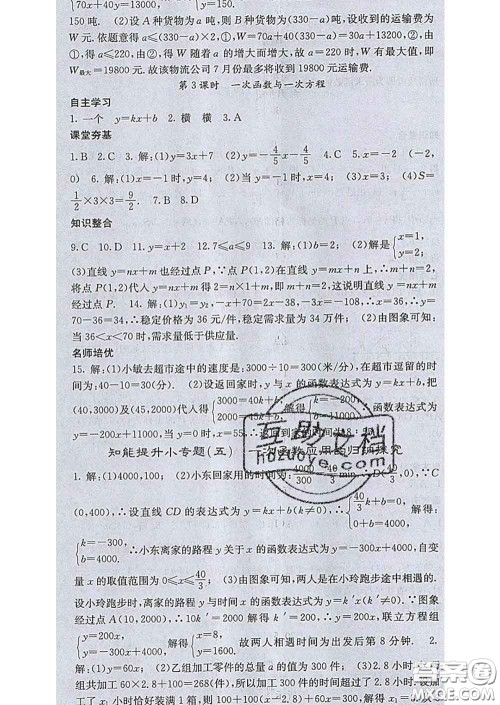 70x+40y=13000, y=150.
150 吨. (2)设 A 种货物为 a 吨,则 B 种货物为(330-a)吨,设收到的运输费为
W 元. 依题意得 a≤(330-a)×2,W=70a+40(330-a)=30a+13200,由
①,得 a≤220,由②,得 W 随着 a 的增大而增大,故 a=220 时,W 有最大值,即
W最大=19800 元. 故该物流公司 7 月份最多将收到 19800 元运输费.
第 3 课时 一次函数与一次方程
自主学习
1. 一个 y=kx+b 2. 横 横 3. A
课堂夯基
1. B 2. C 3. 解:(1)y=3x+7 (2)y=-4/5x-4/5 4. C 5. x=-2 (-2,
0) 6. 解:(1)x=-1 时,y=4; (2)当 y=-1 时,x=4; (3)x=4; (4)S=
1/2×3×3=9/2. 7. B 8. D
知识整合
9. C 10. D 11. y=x+2 12. 7≤a≤9 13. 解:(1)b=2; (2)解是{x=1, y=2;
(3)直线 y=nx+m 也经过点 P,∵点 P(1,2)在直线 y=mx+n 上,∴m+n=2,
将点 P(1,2)代入 y=nx+m 得 2=n+m,即 m+n=2,这说明直线 y=nx+m 也
经过点 P. 14. 解:(1)y₁=y₂,-x+70=2x-38,-x-2x=-38-70,∴x=36,∴y=
70-36=34,∴稳定价格为 36 元/件,稳定需求量为 34 万件; (2)由图象可知:
当 36<x<70 时,该物品需求量低于供应量.
名师培优
15. 解:(1)小敏去超市途中的速度是:3000÷10=300(米/分),在超市逗留的时间
为:40-10=30(分). (2)设返回家时,y 与 x 的函数表达式为 y=kx+b,把
(40,3000)及(45,2000)代入得{3000=40k+b, 2000=45k+b, 解得{k=-200, b=11000,
y=-200x+11000,当 y=0 时,x=55,
知能提升小专题(五) 一次函数应用的归类探究
1. 解:(1)4000,100; (2)小东回家用的时间为:4000/300=40/3 min,∴D(40/3,0),∵C(0,
4000),∴设直线 CD 的表达式为 y=kx+b(k≠0),∴{40/3k+b=0, 0+b=4000. 解得:
{k=-300, b=4000. ∴小东离家的路程 y 关于 x 的函数表达式为 y=-300x+4000,自变
量 x 的取值范围为 0≤x≤40/3; (3)由图象可知,两人是在小玲跑步途中相遇的.
设小玲跑步时,离家的路程 y 与时间 x 的函数表达式为 y=k′x(k′≠0),∵图象
经过点 A(10,2000),∴10k′=2000 解得 k′=200,∴y=200x,联立方程组
{y=200x, y=-300x+4000, 解得{x=8, y=1600. 故两人相遇时间为出发后第 8 分钟. 2.
解:(1)y=60x; (2)乙组加工零件的总量 a 的值为 300 件; (3)2.8 小时
组共加工 60×2.8+100=268(件),所以加工 2.8 小时
了 x₁ 小时恰好装满 1 箱,则 100+100(x₁-2.8)+60x₁=300,解得 x₁=3.
互助文档
hozuoye.com
答案圈
MXQE.COM